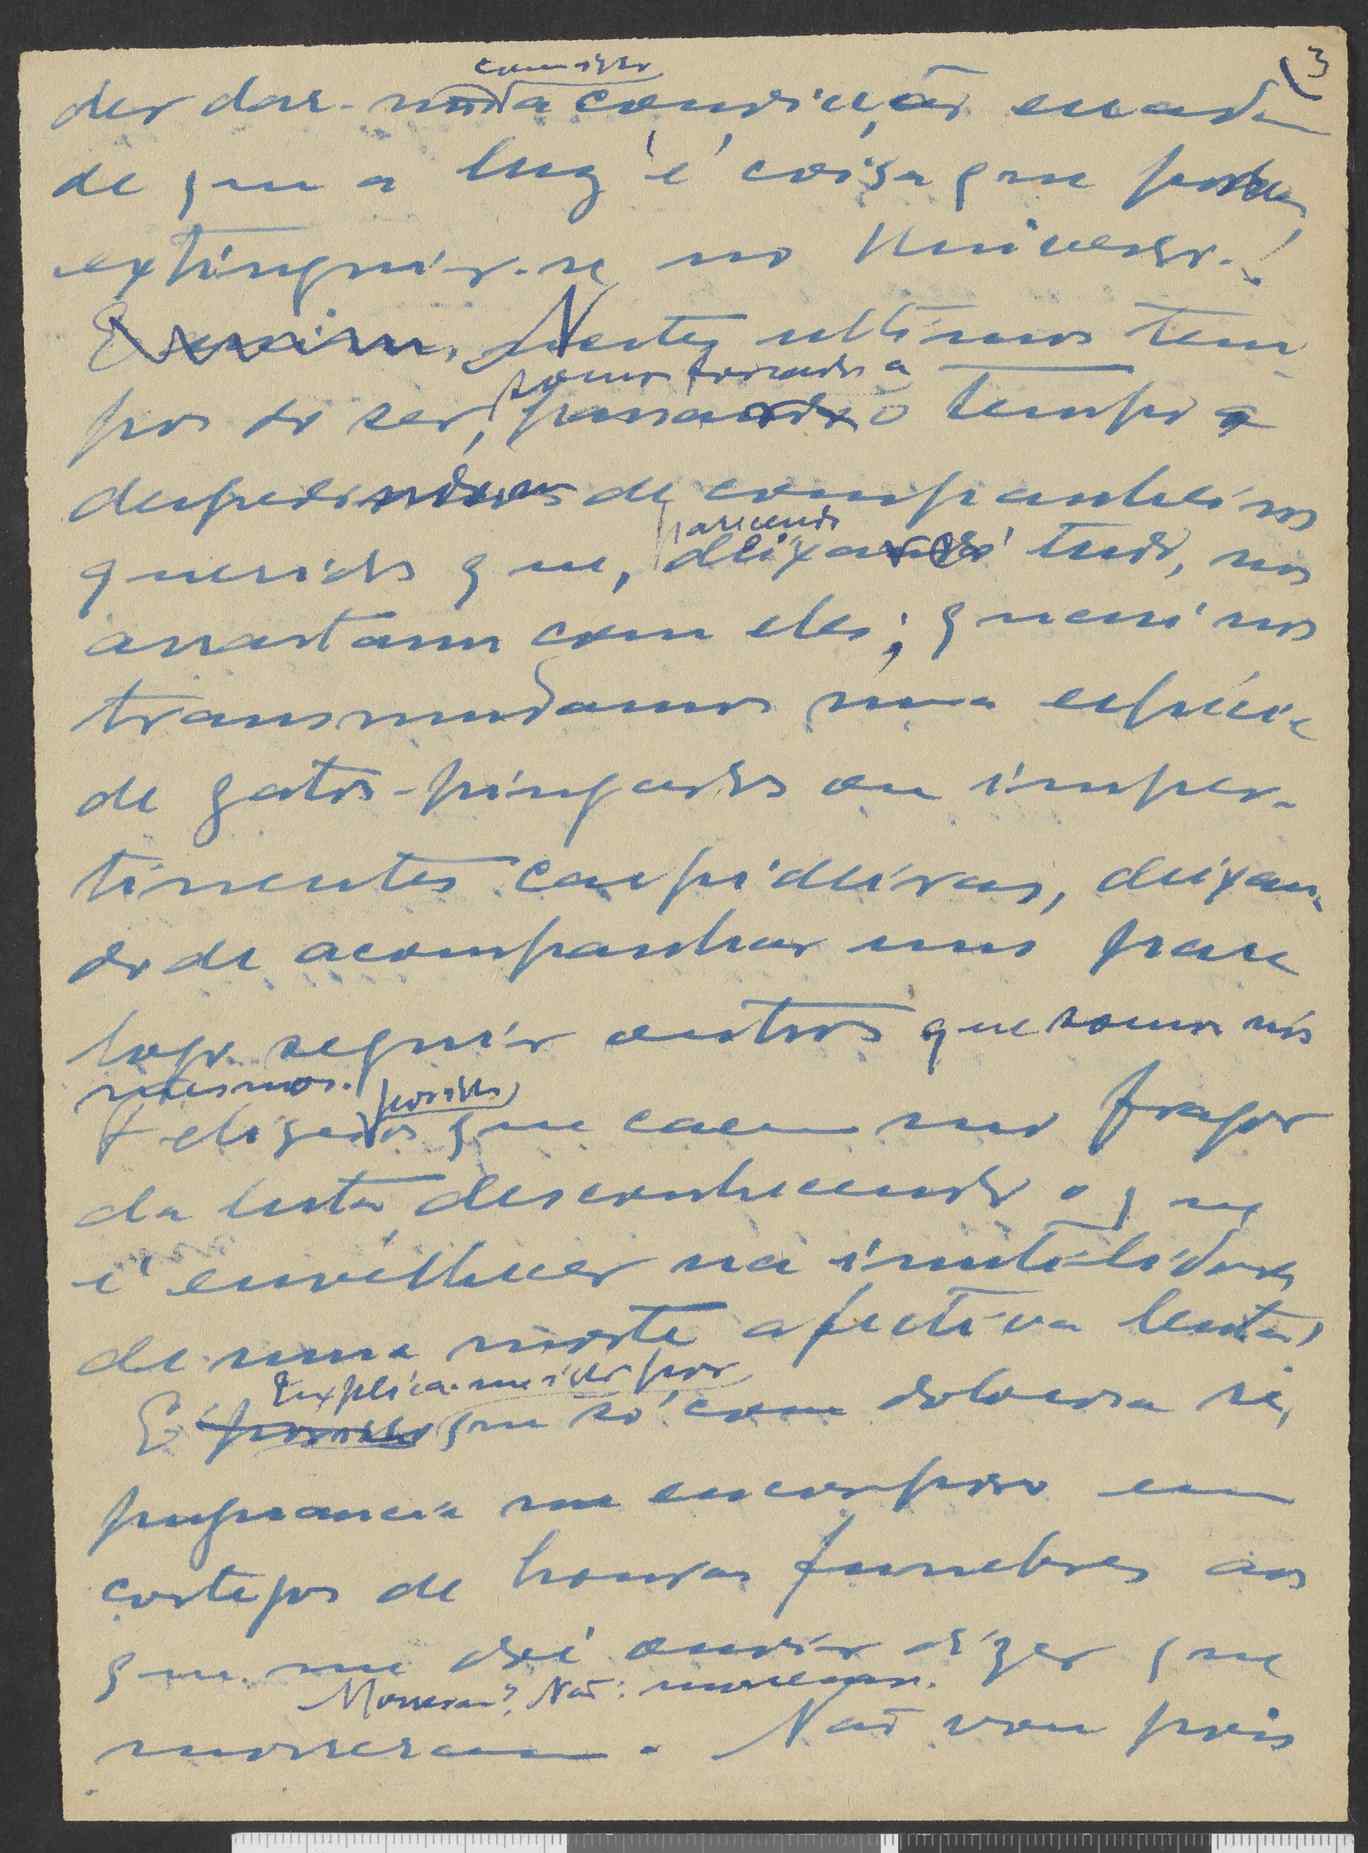 3
der dar-nos comisso a convicção errada
de que a luz é coisa que possa
extinguir-se no Universo.!
Nestes ultimos tem-
pos do ser, somos forçados a passar o tempo a
despedirmos de companheiros
queridos que, parecendo deixar tudo, nos
arrastam com eles; quasi nos
transmudamos numa espécie
de gatos-pingados ou imper-
tinentes carpideiras, deixan-
do de acompanhar uns para
logo seguir outros que somos nós
mesmos.
Felizes pois os que caem no fragor
da luta, desconhecendo o que
é envelhecer na inutilidade
de uma morte afectiva lenta!
E explica-me isto por que só com dolorosa re-
pugnancia me encorporo em
cortejos de honras funebres aos
que me doi ouvir dizer que
morreram. Morreram? Não: morremos. Não vou pois